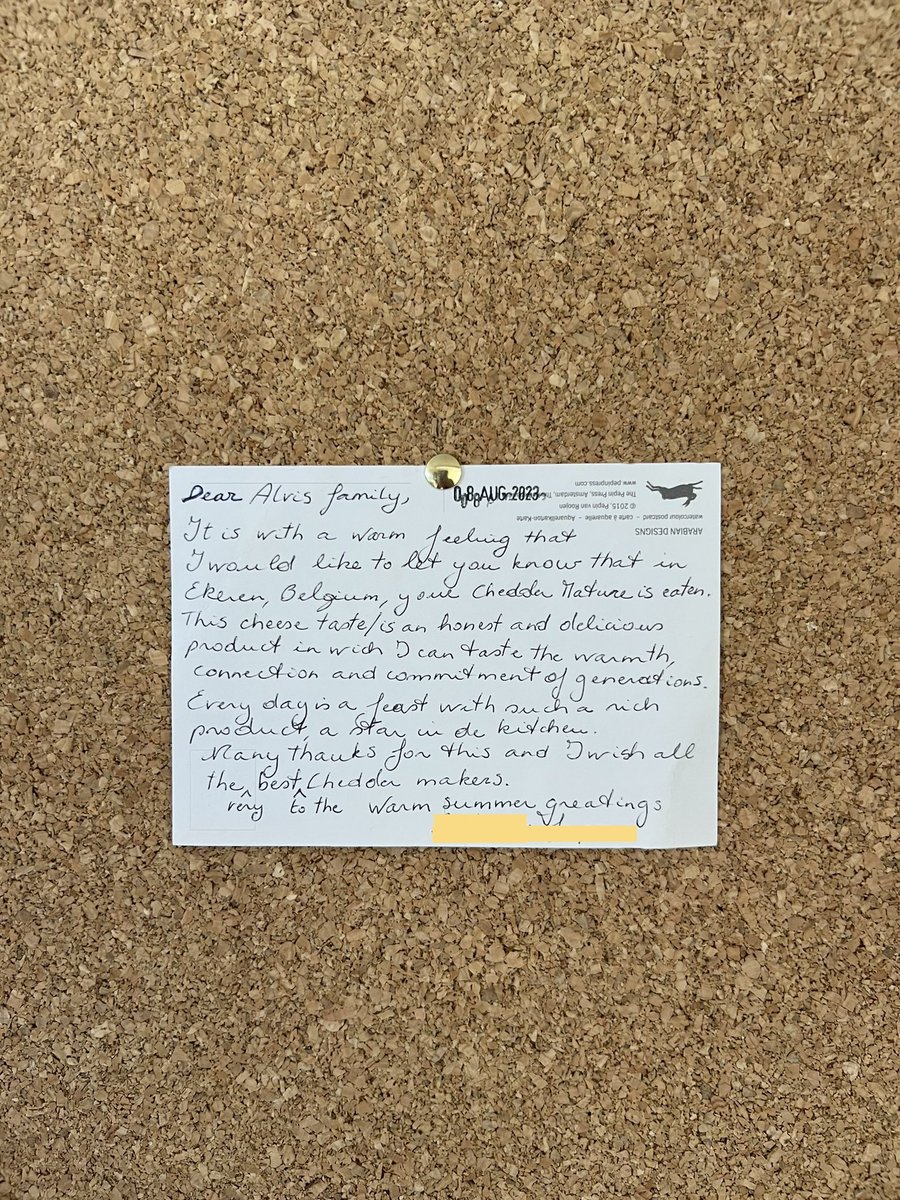 Dear Alvis family,
It is with a warm feeling that
I would like to let you know that in
Ekeren, Belgium, your Chedda Mature is eaten.
This cheese taste/is an honest and delicious
product in wich I can taste the warmth,
connection and commitment of generations.
Every day is a feast with such a rich
product, a star in de kitchen.
Many thanks for this and I wish all
the best, Chedda makers.
very to the warm summer greatings
08 AUG 2023
ARABIAN DESIGNS
watercolour postcard – carte à aquarelle – Aquarellkarton-Karte
© 2015, Pepin van Roojen
The Pepin Press, Amsterdam,
www.pepinpress.com